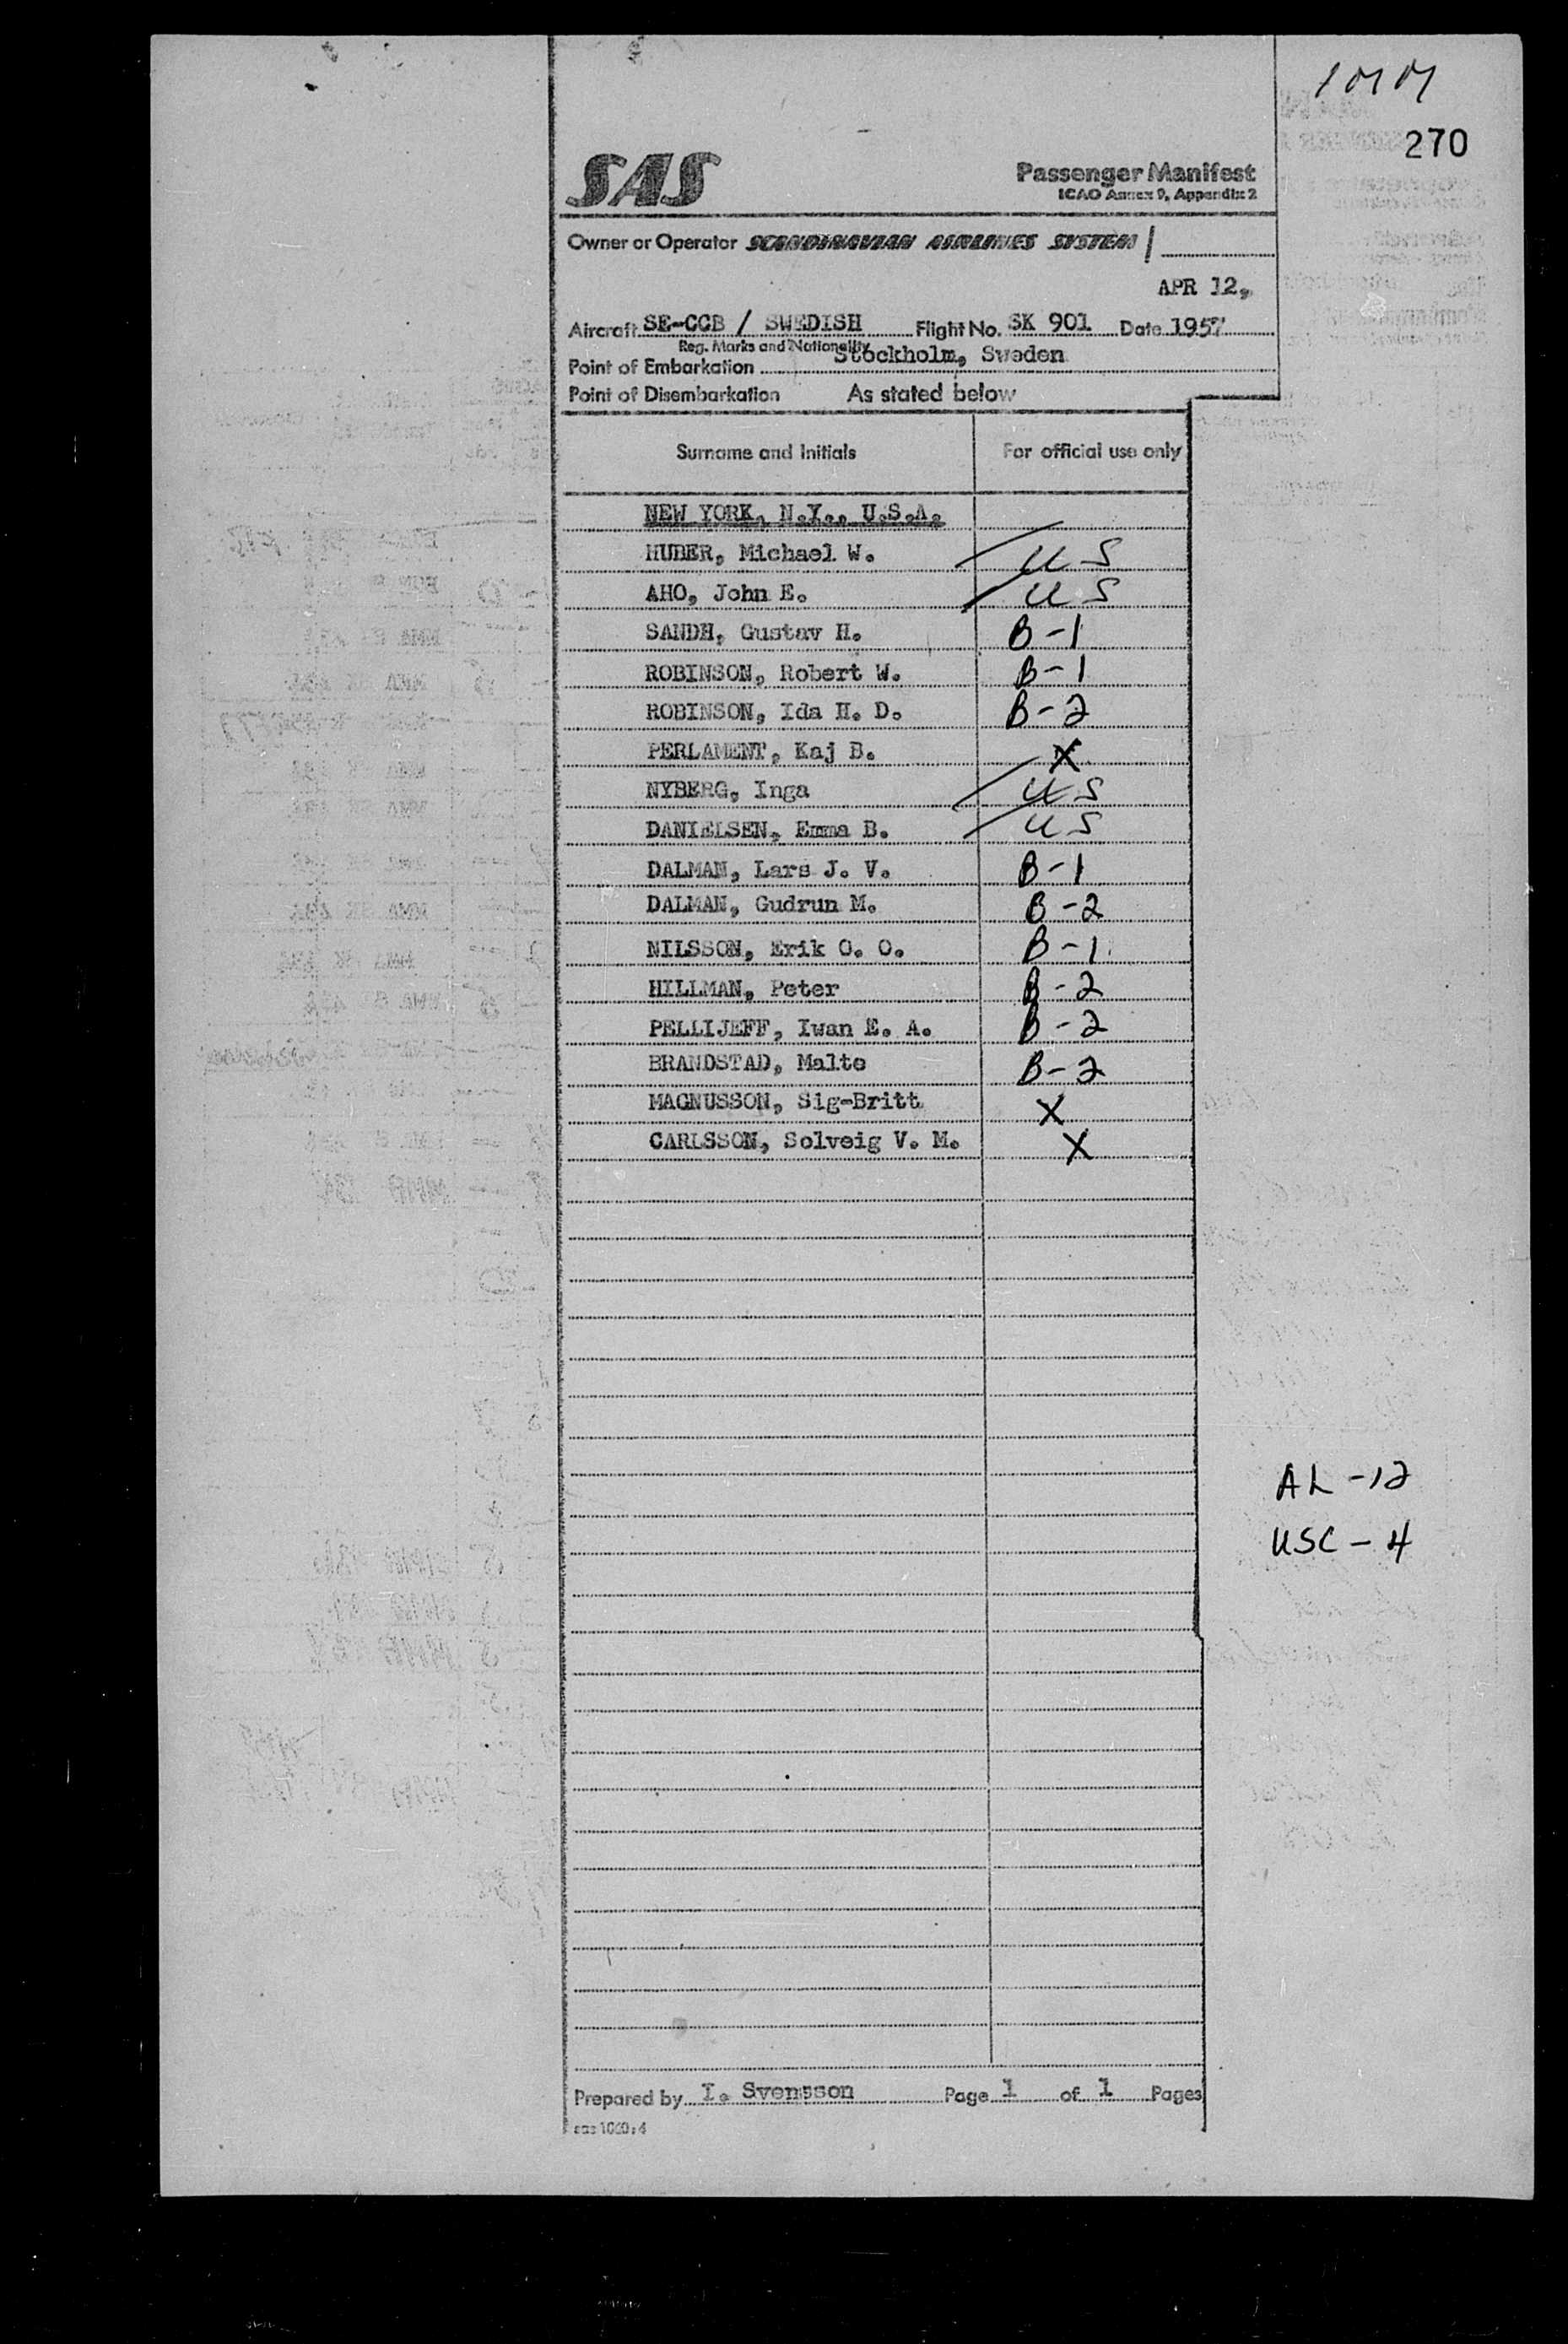 270
SAS
Passenger Manifest
ICAO Annex 9, Appendix 2
Owner or Operator SCANDINAVIAN AIRLINES SYSTEM /
APR 12,
Aircraft SE-CCB / SWEDISH Flight No. SK 901 Date 1957
Reg. Marks and Nationality
Point of Embarkation Stockholm, Sweden
Point of Disembarkation As stated below
Surname and Initials For official use only
NEW YORK, N.Y., U.S.A.
HUBER, Michael W. US
AHO, John E. US
SANDH, Gustav H. B-1
ROBINSON, Robert W. B-1
ROBINSON, Ida H. D. B-2
PERLAMENT, Kaj B. X
NYBERG, Inga US
DANIELSEN, Emma B. US
DALMAN, Lars J. V. B-1
DALMAN, Gudrun M. B-2
NILSSON, Erik O. O. B-1
HILLMAN, Peter B-2
PELLIJEFF, Iwan E. A. B-2
BRANDSTAD, Malte B-2
MAGNUSSON, Sig-Britt X
CARLSSON, Solveig V. M. X
AL -12
USC - 4
Prepared by I. Svensson Page 1 of 1 Pages
sas 1060:4